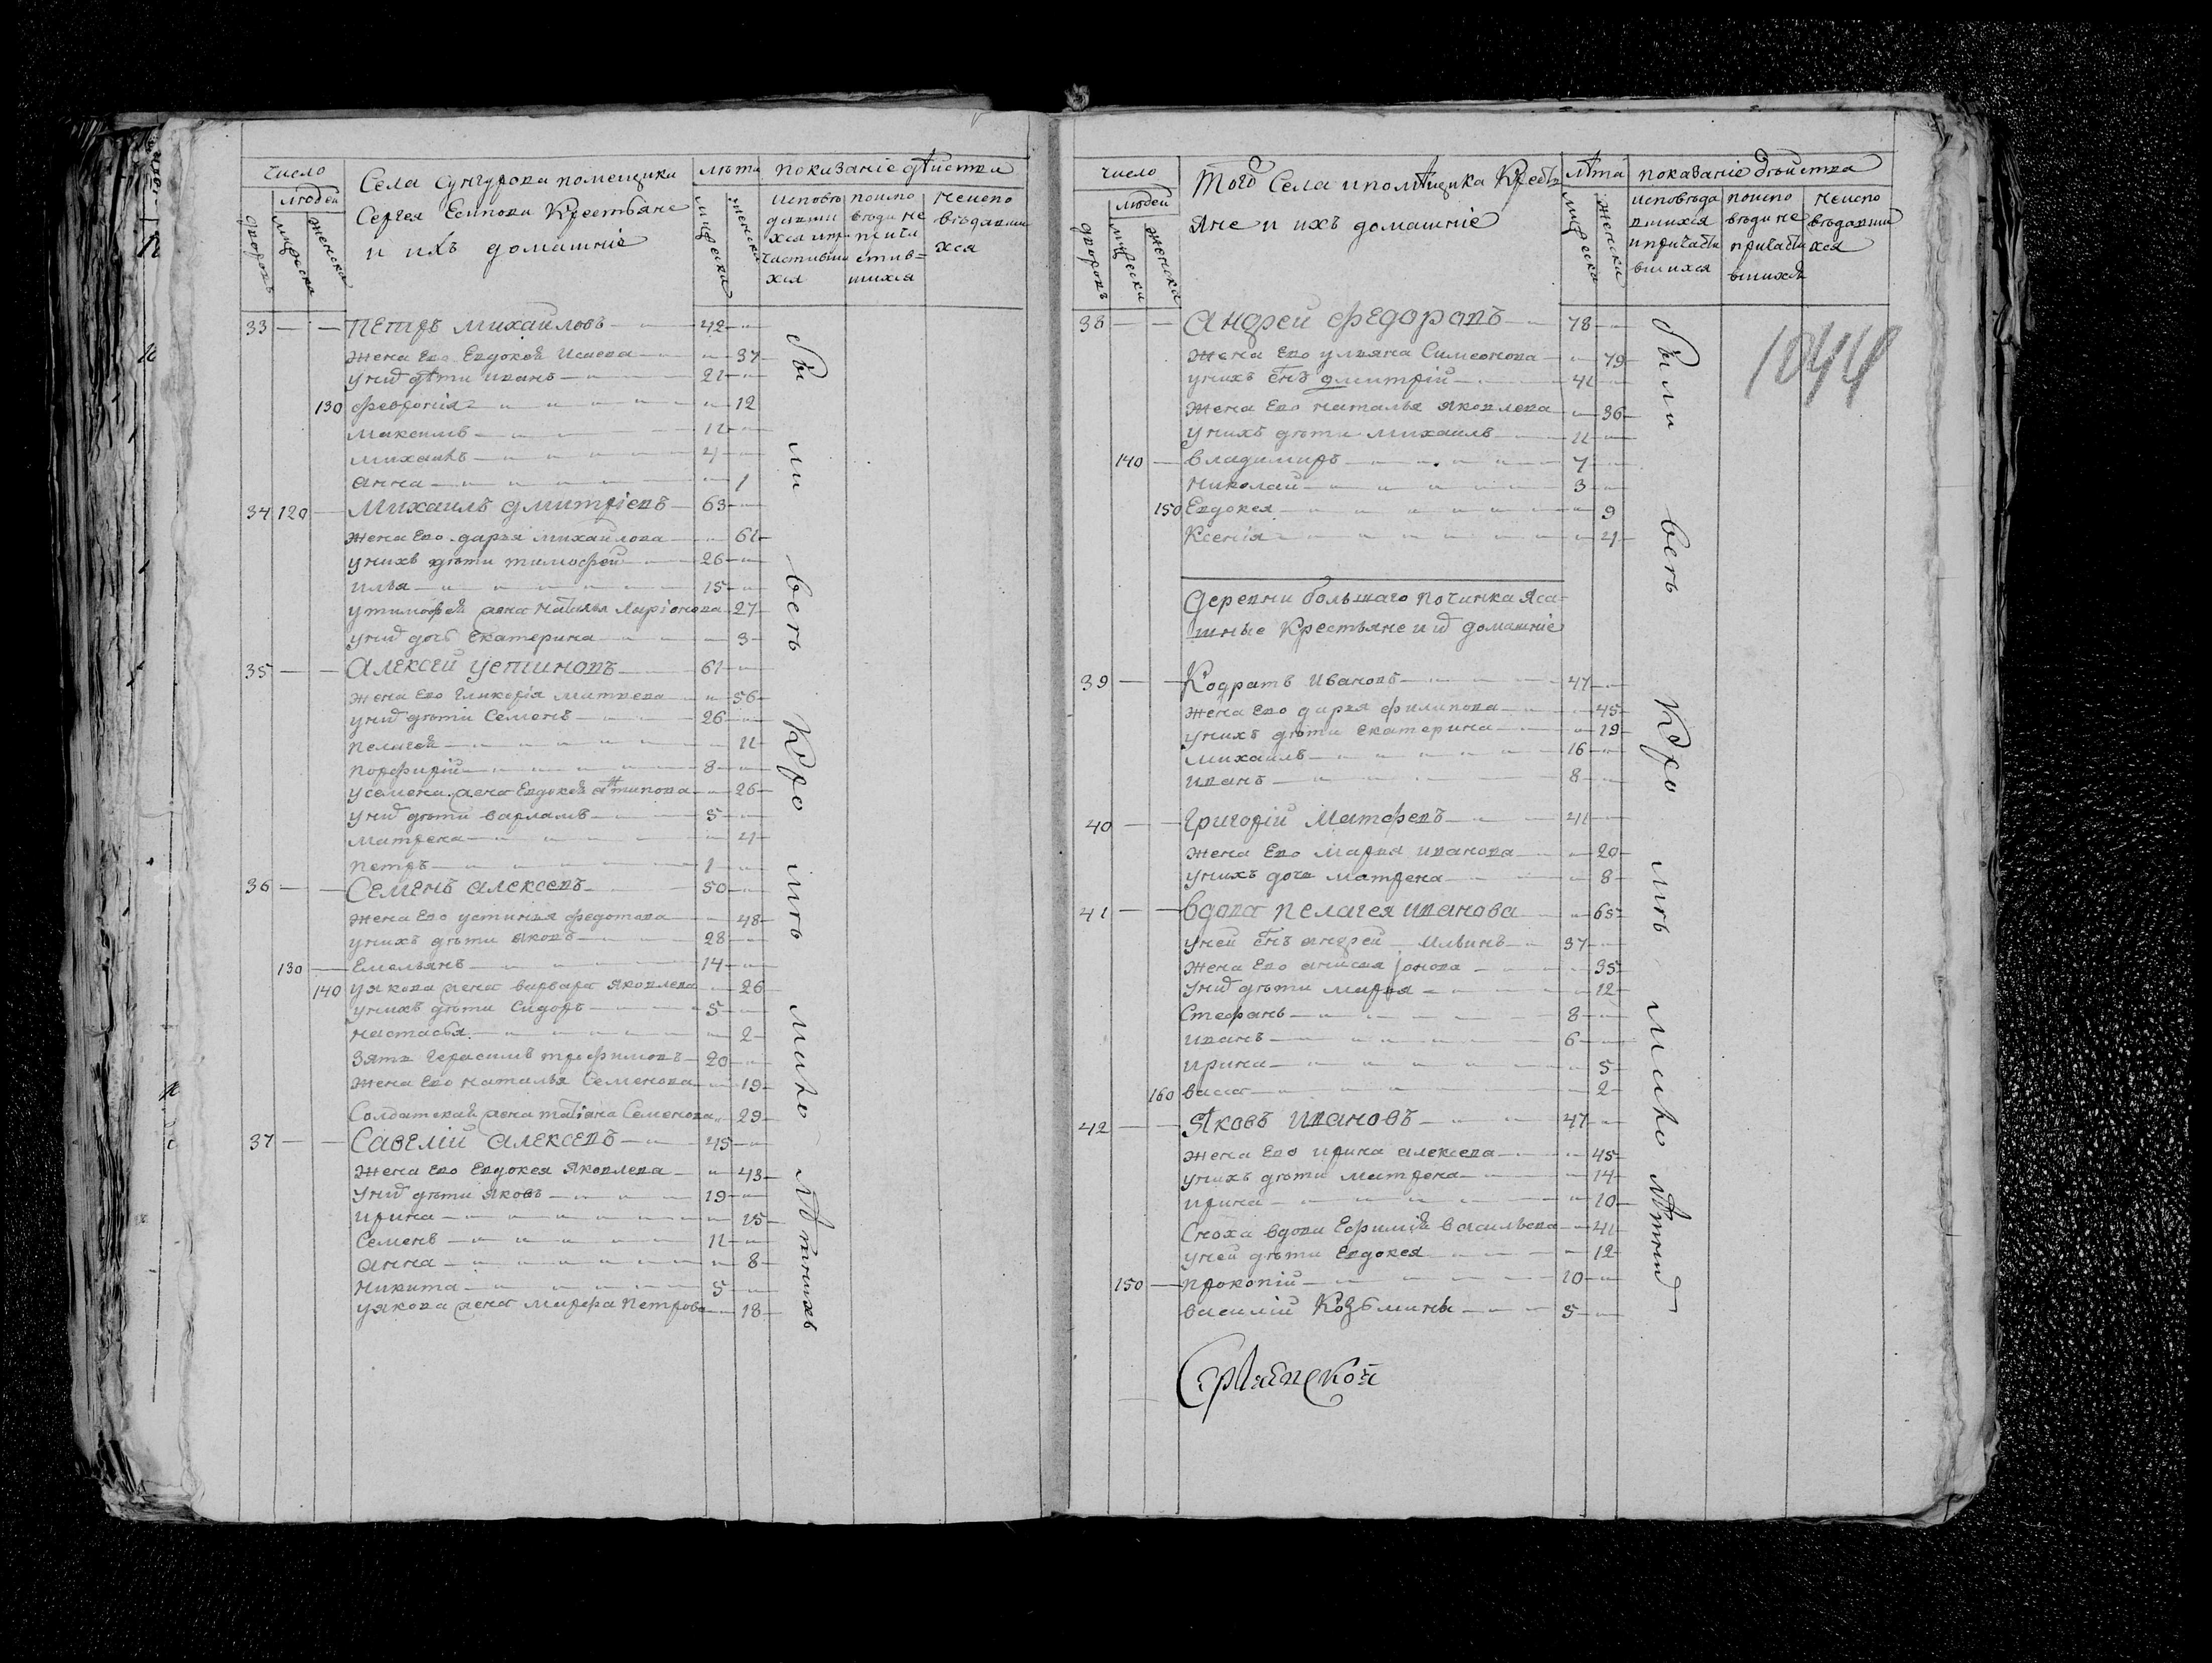 число
людей
дворовъ
мужеска
женска
Села Сунгурова помещика
Сергея Есипова Крестьяне
и ихъ домашніе
лѣта
мужеска
женска
показаніе дѣйства
исповѣдавшихся и причастившихся
по исповѣди не причастившихся
неисповѣдавшихся
33 — — Петръ Михайловъ — 42
жена ево Евдокея Исаева — 37
у них дѣти Иванъ — 21
130 Феврония — 12
Максимъ — 12
Михаилъ — 4
Анна — 1
34 120 — Михаилъ Дмитріевъ — 63
жена ево Дарья Михайлова — 61
у нихъ дѣти Тимофей — 26
Илья — 15
у Тимофея жена Наталья Ларіонова 27
у них дочь Екатерина — 3
35 — — Алексей Устиновъ — 61
жена ево Гликерія Матвеева — 56
у них дѣти Семенъ — 26
Пелагея — 11
Порфирій — 8
у Семена жена Евдокея Антипова — 26
у них дѣти Варламъ — 5
Матрена — 4
Петръ — 1
36 — — Семенъ Алексевъ — 50
жена ево Устинья Федотова — 48
у нихъ дѣти Яковъ — 28
130 — Емельянъ — 14
140 у Якова жена Варвара Яковлева — 26
у нихъ дѣти Сидоръ — 5
Настасья — 2
зять Герасимъ Трофимовъ — 20
жена ево Наталья Семенова — 19
Солдатская жена Татіана Семенова 29
37 — — Савелій Алексевъ — 45
жена ево Евдокея Яковлева — 43
у них дѣти Яковъ — 19
Ирина — 15
Семенъ — 11
Анна — 8
Никита — 5
у Якова жена Марфа Петрова — 18
были всѣ кро мѣ мало лѣтнихъ
число
людей
дворовъ
мужеска
женска
Того Села и помѣщика Кресть
яне и ихъ домашніе
лѣта
мужеска
женска
показаніе дѣйства
исповѣдавшихся и причастившихся
по исповѣди не причастившихся
неисповѣдавшихся
1044
38 — — Андрей Федоровъ — 78
жена ево Ульяна Симеонова — 79
у нихъ снъ Дмитрій — 41
жена ево Наталья Яковлева — 36
у нихъ дѣти Михаилъ — 11
140 — Владимиръ — 7
Николай — 3
150 Евдокея — 9
Ксенія — 4
Деревни Большаго Починка Яса-
шные Крестьяне и их домашніе
39 — — Кодратъ Ивановъ — 47
жена ево Дарья Филипова — 45
у нихъ дѣти Екатерина — 19
Михаилъ — 16
Иванъ — 8
40 — — Григорій Матфевъ — 41
жена ево Марья Иванова — 20
у нихъ дочь Матрена — 8
41 — — Вдова Пелагея Иванова — 65
у ней снъ Андрей Ильинъ — 37
жена ево Анисья Іонова — 35
у них дѣти Марья — 12
Стефанъ — 8
Иванъ — 6
Ирина — 5
160 Васса — 2
42 — — Яковъ Ивановъ — 47
жена ево Ирина Алексева — 45
у нихъ дѣти Матрена — 14
Ирина — 10
Сноха вдова Ефимія Васильева — 41
у ней дѣти Евдокея — 12
150 — Прокопій — 10
Василій Козьмины — 5
были всѣ кро мѣ мало лѣтних